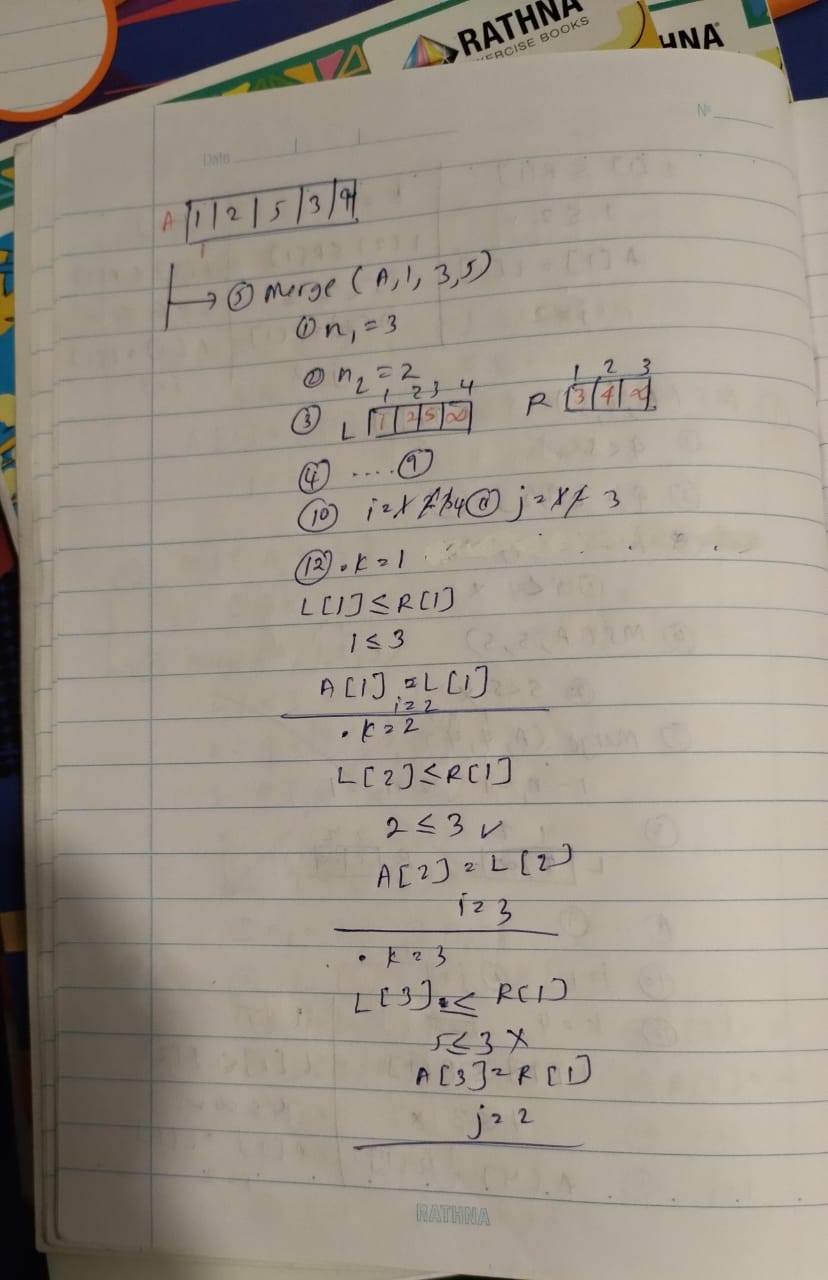 RATHNA
EXERCISE BOOKS
No
Date
A 1 | 2 | 5 | 3 | 4
1
→ ⑤ Merge (A, 1, 3, 5)
① n₁ = 3
② n₂ = 2
1 2 3 4
1 2 3
③ L 1 | 2 | 5 | ∞ R 3 | 4 | ∞
④ .... ⑨
⑩ i = 1 2 3 4 ⑪ j = 1 2 3
⑫ • k = 1
L[1] ≤ R[1]
1 ≤ 3
A[1] = L[1]
i = 2
• k = 2
L[2] ≤ R[1]
2 ≤ 3 ✓
A[2] = L[2]
i = 3
• k = 3
L[3] ≤ R[1]
5 ≤ 3 ✗
A[3] = R[1]
j = 2
RATHNA